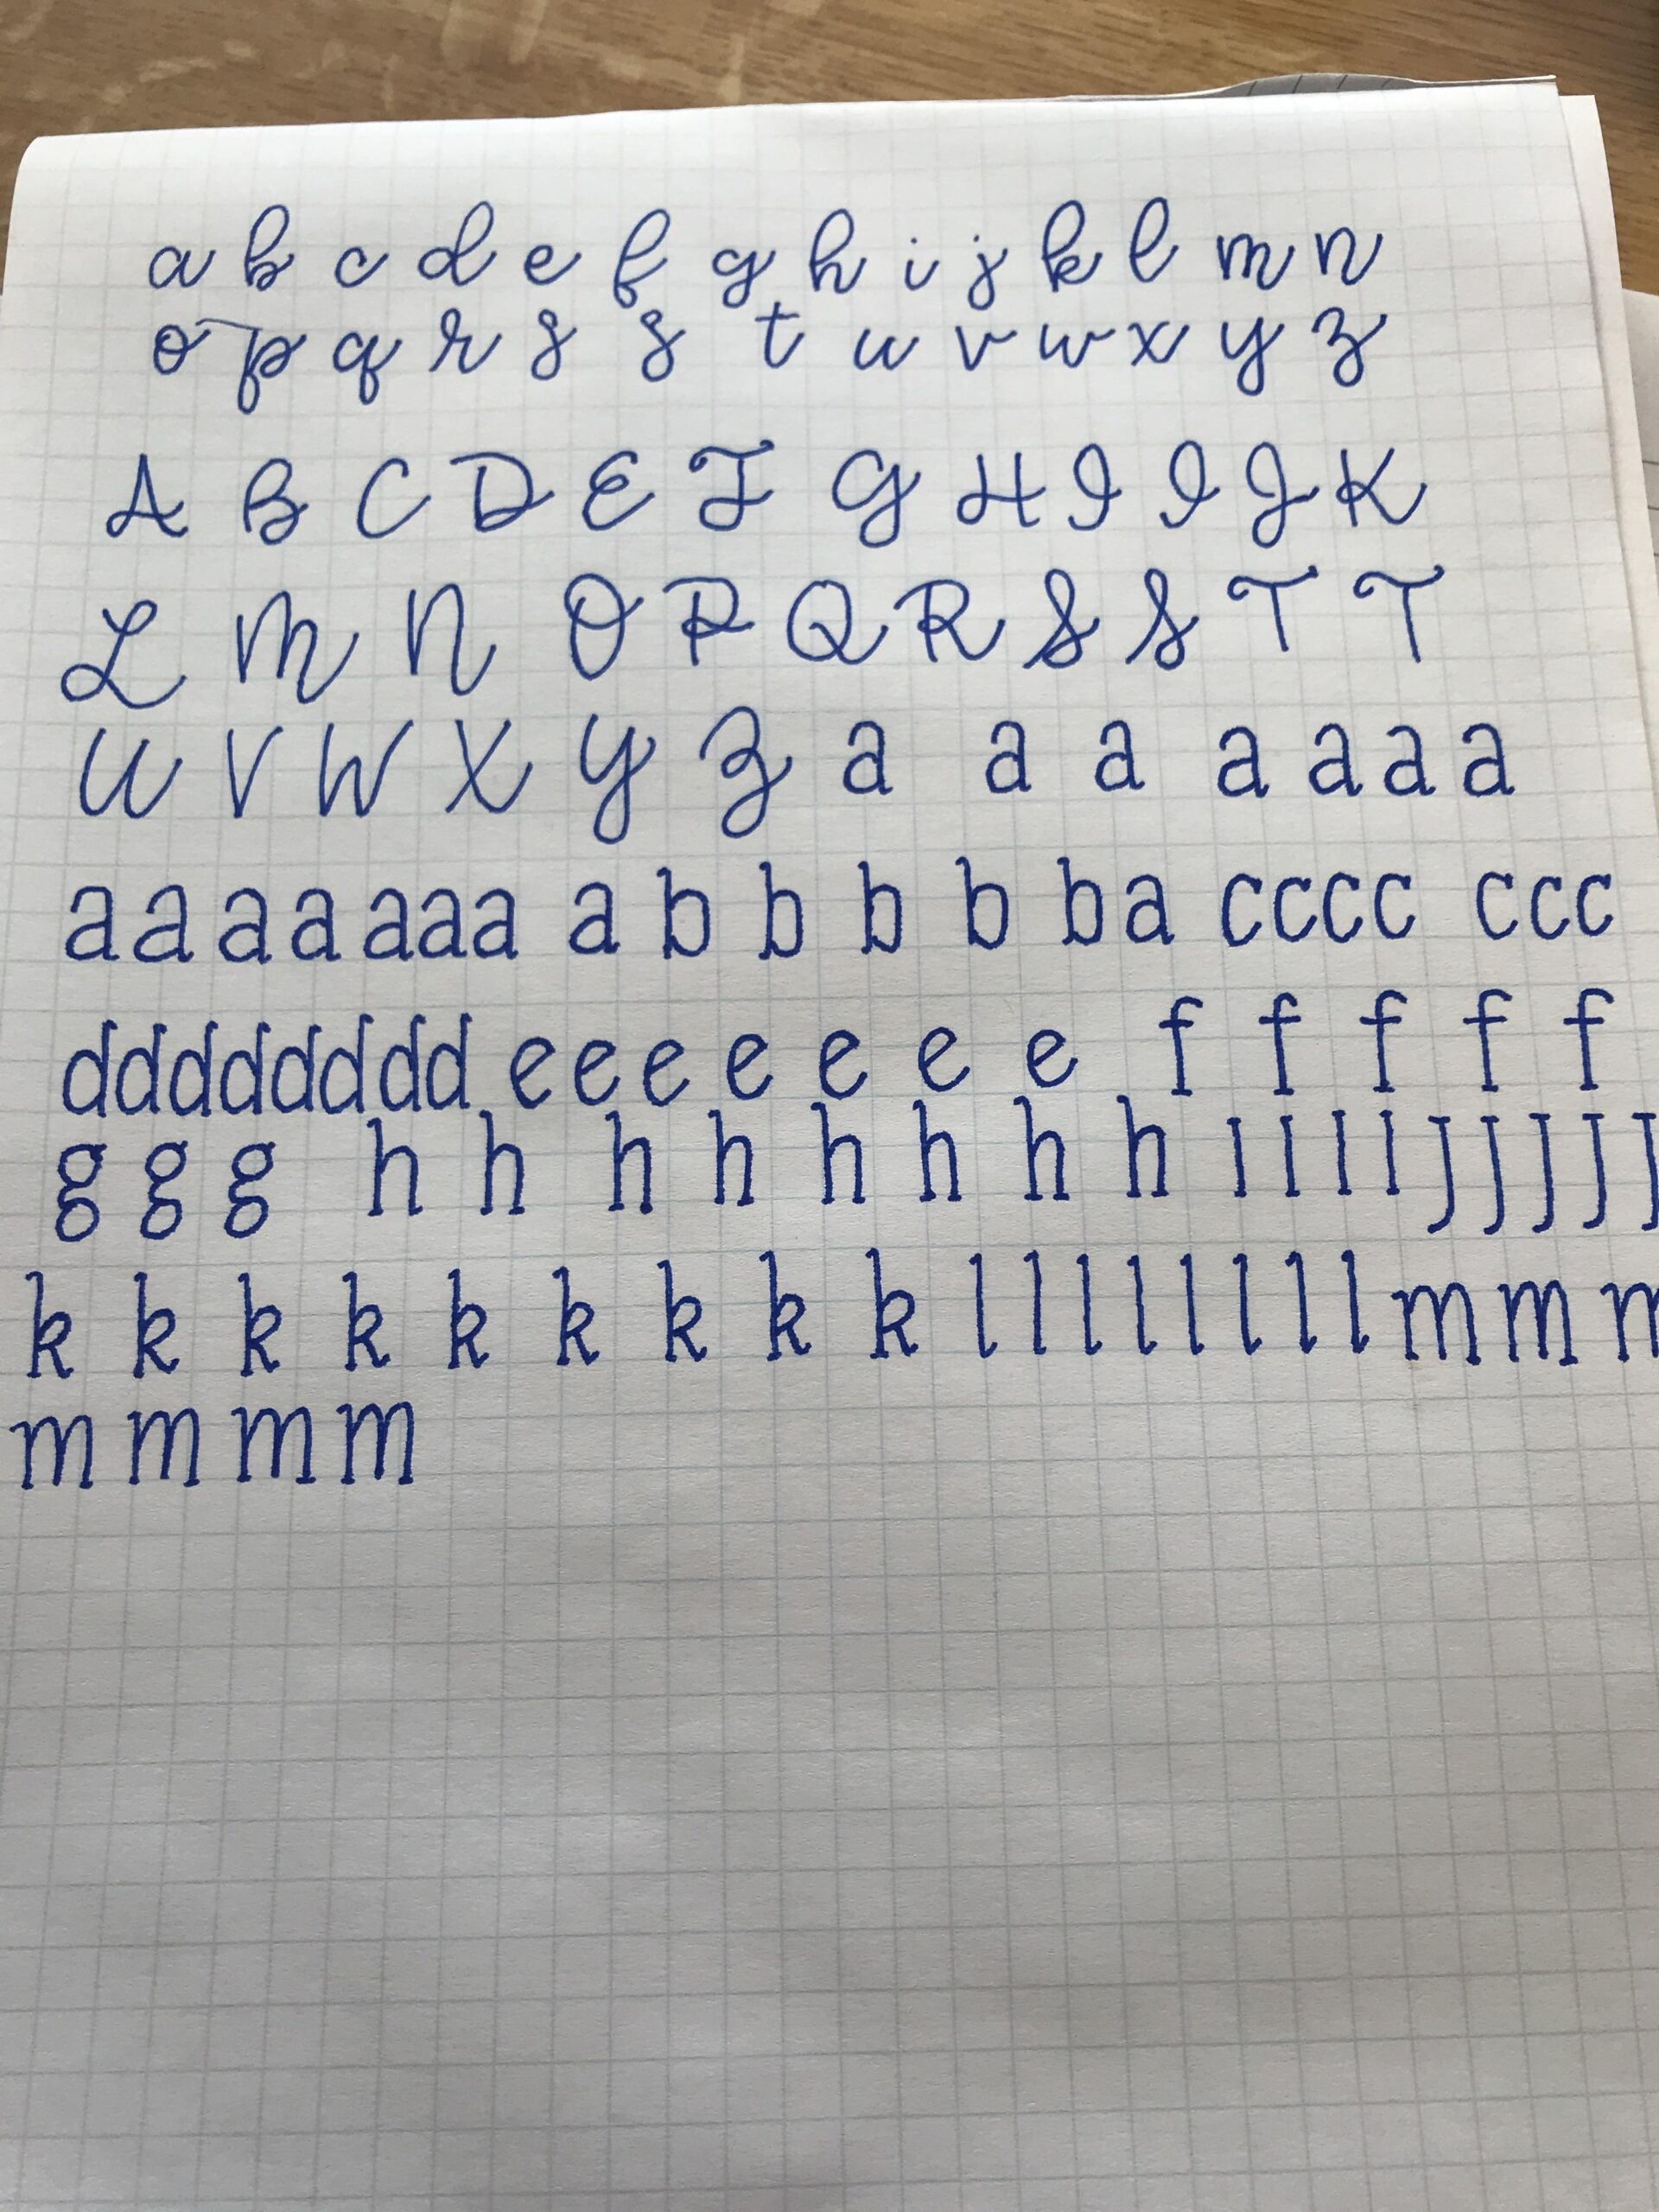 a b c d e f g h i j k l m n
o p q r s s t u v w x y z
A B C D E F G H I I J K
L M N O P Q R S S T T
U V W X Y Z a a a a a a a
a a a a a a a a b b b b b a c c c c c c c
d d d d d d d d e e e e e e e f f f f f
g g g h h h h h h h h ı ı ı ı ȷ ȷ ȷ ȷ ȷ
k k k k k k k k k l l l l l l l l m m m
m m m m